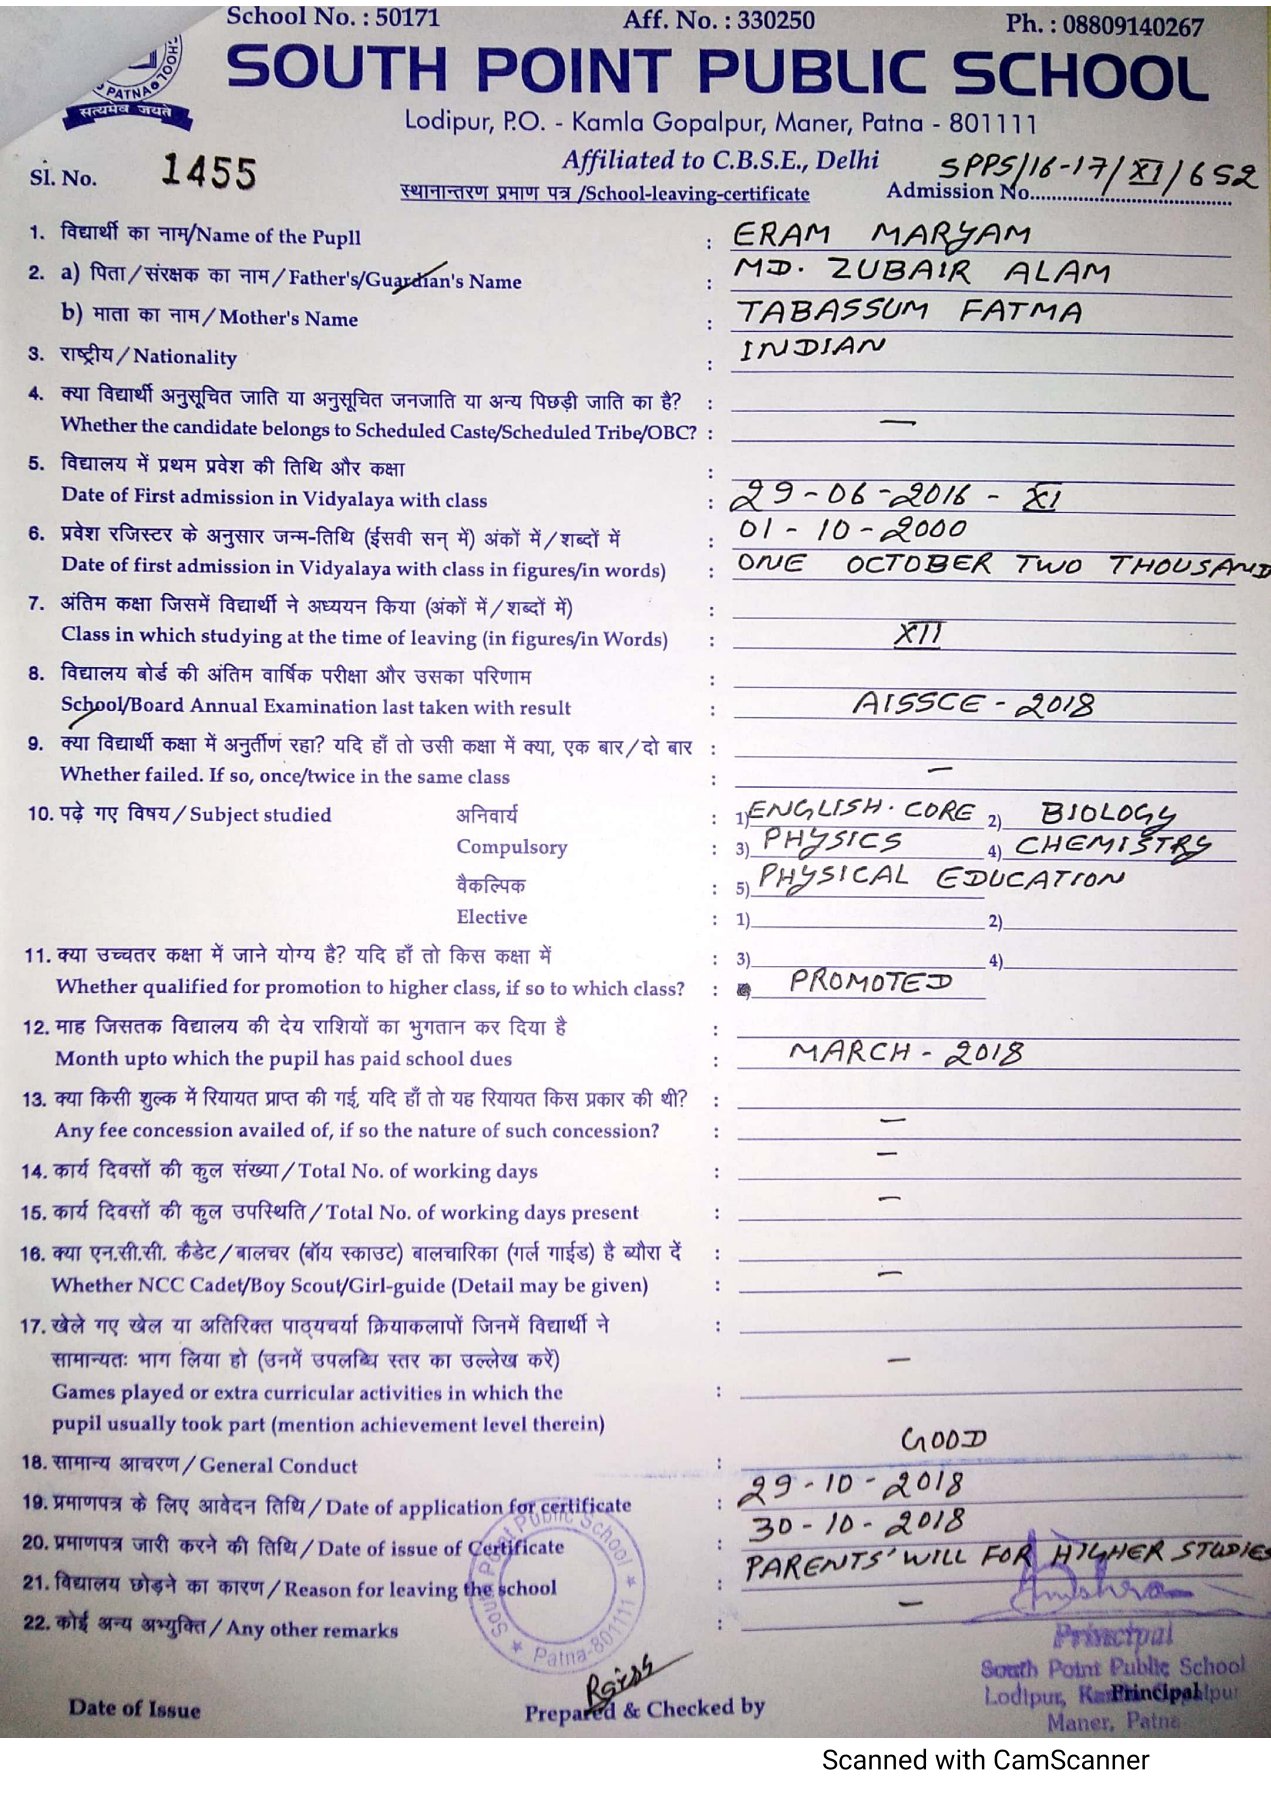 School No. : 50171 Aff. No. : 330250 Ph. : 08809140267
SOUTH POINT PUBLIC SCHOOL
PATNA
सत्यमेव जयते
Lodipur, P.O. - Kamla Gopalpur, Maner, Patna - 801111
Affiliated to C.B.S.E., Delhi
Sl. No. 1455
स्थानान्तरण प्रमाण पत्र /School-leaving-certificate
Admission No. SPPS/16-17/XI/652
1. विद्यार्थी का नाम/Name of the Pupll : ERAM MARYAM
2. a) पिता/संरक्षक का नाम/Father's/Guardian's Name : MD. ZUBAIR ALAM
b) माता का नाम/Mother's Name : TABASSUM FATMA
3. राष्ट्रीय/Nationality : INDIAN
4. क्या विद्यार्थी अनुसूचित जाति या अनुसूचित जनजाति या अन्य पिछड़ी जाति का है? :
Whether the candidate belongs to Scheduled Caste/Scheduled Tribe/OBC? : —
5. विद्यालय में प्रथम प्रवेश की तिथि और कक्षा :
Date of First admission in Vidyalaya with class : 29-06-2016 - XI
6. प्रवेश रजिस्टर के अनुसार जन्म-तिथि (ईसवी सन् में) अंकों में/शब्दों में : 01-10-2000
Date of first admission in Vidyalaya with class in figures/in words) : ONE OCTOBER TWO THOUSAND
7. अंतिम कक्षा जिसमें विद्यार्थी ने अध्ययन किया (अंकों में/शब्दों में) :
Class in which studying at the time of leaving (in figures/in Words) : XII
8. विद्यालय बोर्ड की अंतिम वार्षिक परीक्षा और उसका परिणाम :
School/Board Annual Examination last taken with result : AISSCE - 2018
9. क्या विद्यार्थी कक्षा में अनुर्तीण रहा? यदि हाँ तो उसी कक्षा में क्या, एक बार/दो बार :
Whether failed. If so, once/twice in the same class : —
10. पढ़े गए विषय/Subject studied अनिवार्य : 1) ENGLISH. CORE 2) BIOLOGY
Compulsory : 3) PHYSICS 4) CHEMISTRY
वैकल्पिक : 5) PHYSICAL EDUCATION
Elective : 1) 2)
11. क्या उच्चतर कक्षा में जाने योग्य है? यदि हाँ तो किस कक्षा में : 3) 4)
Whether qualified for promotion to higher class, if so to which class? : PROMOTED
12. माह जिसतक विद्यालय की देय राशियों का भुगतान कर दिया है :
Month upto which the pupil has paid school dues : MARCH - 2018
13. क्या किसी शुल्क में रियायत प्राप्त की गई, यदि हाँ तो यह रियायत किस प्रकार की थी? :
Any fee concession availed of, if so the nature of such concession? : —
14. कार्य दिवसों की कुल संख्या/Total No. of working days : —
15. कार्य दिवसों की कुल उपस्थिति/Total No. of working days present : —
16. क्या एन.सी.सी. कैडेट/बालचर (बॉय स्काउट) बालचारिका (गर्ल गाईड) है ब्यौरा दें :
Whether NCC Cadet/Boy Scout/Girl-guide (Detail may be given) : —
17. खेले गए खेल या अतिरिक्त पाठ्यचर्या क्रियाकलापों जिनमें विद्यार्थी ने :
सामान्यतः भाग लिया हो (उनमें उपलब्धि स्तर का उल्लेख करें) —
Games played or extra curricular activities in which the :
pupil usually took part (mention achievement level therein)
18. सामान्य आचरण/General Conduct : GOOD
19. प्रमाणपत्र के लिए आवेदन तिथि/Date of application for certificate : 29-10-2018
20. प्रमाणपत्र जारी करने की तिथि/Date of issue of Certificate : 30-10-2018
21. विद्यालय छोड़ने का कारण/Reason for leaving the school : PARENTS' WILL FOR HIGHER STUDIES
22. कोई अन्य अभ्युक्ति/Any other remarks : —
South Point Public School
Patna-801111
Principal
South Point Public School
Lodipur,
Maner, Patna
Date of Issue Prepared & Checked by Principal
Scanned with CamScanner